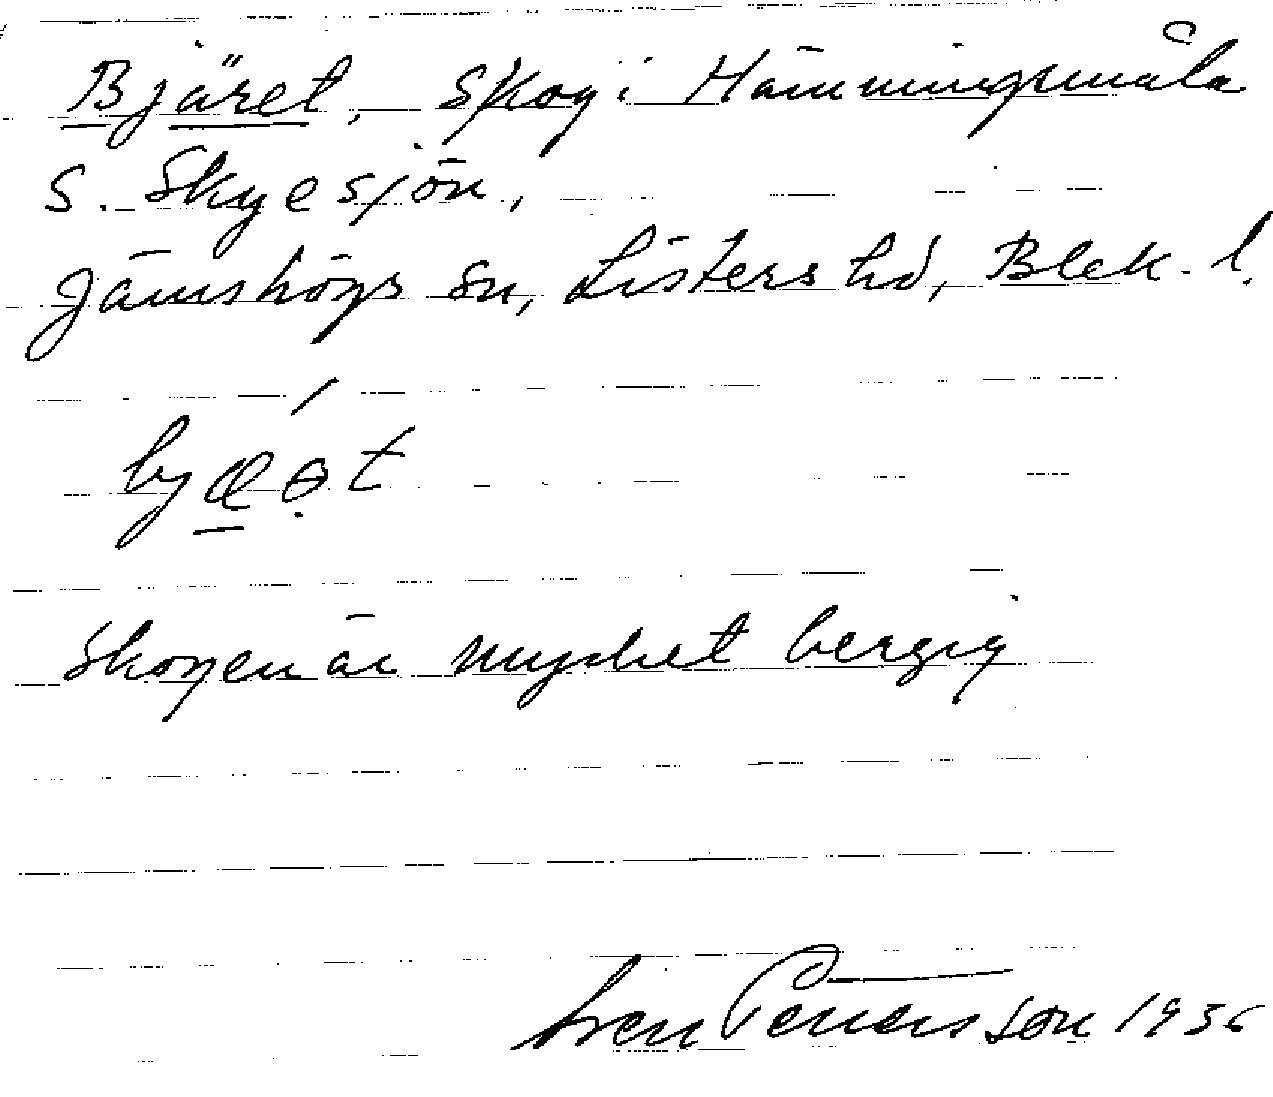 Bjäret, Skog i Hämmingsmåla
S. Skyesjön,
Jämshögs Sn, Listers hd, Blek. l.
Skogen är mycket bergig
Sven Pettersson 1936